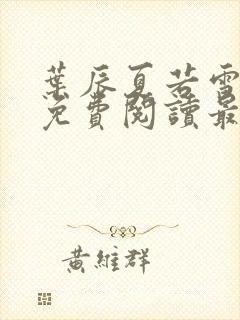 葉辰夏若雪
免費閱讀最
黃維群